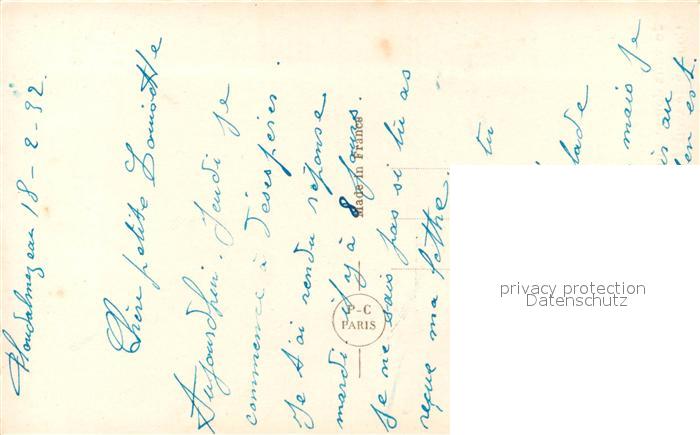 Ploudalmézeau 18-2-32.
Chère petite Louisette
Aujourdhui, jeudi je
commence à désespérer.
Je t'ai rendu réponse
mardi il y a 8 jours.
Je ne sais pas si tu as
reçue ma lettre.
tu
mais je
en est.
Made in France
P-C
PARIS
privacy protection
Datenschutz